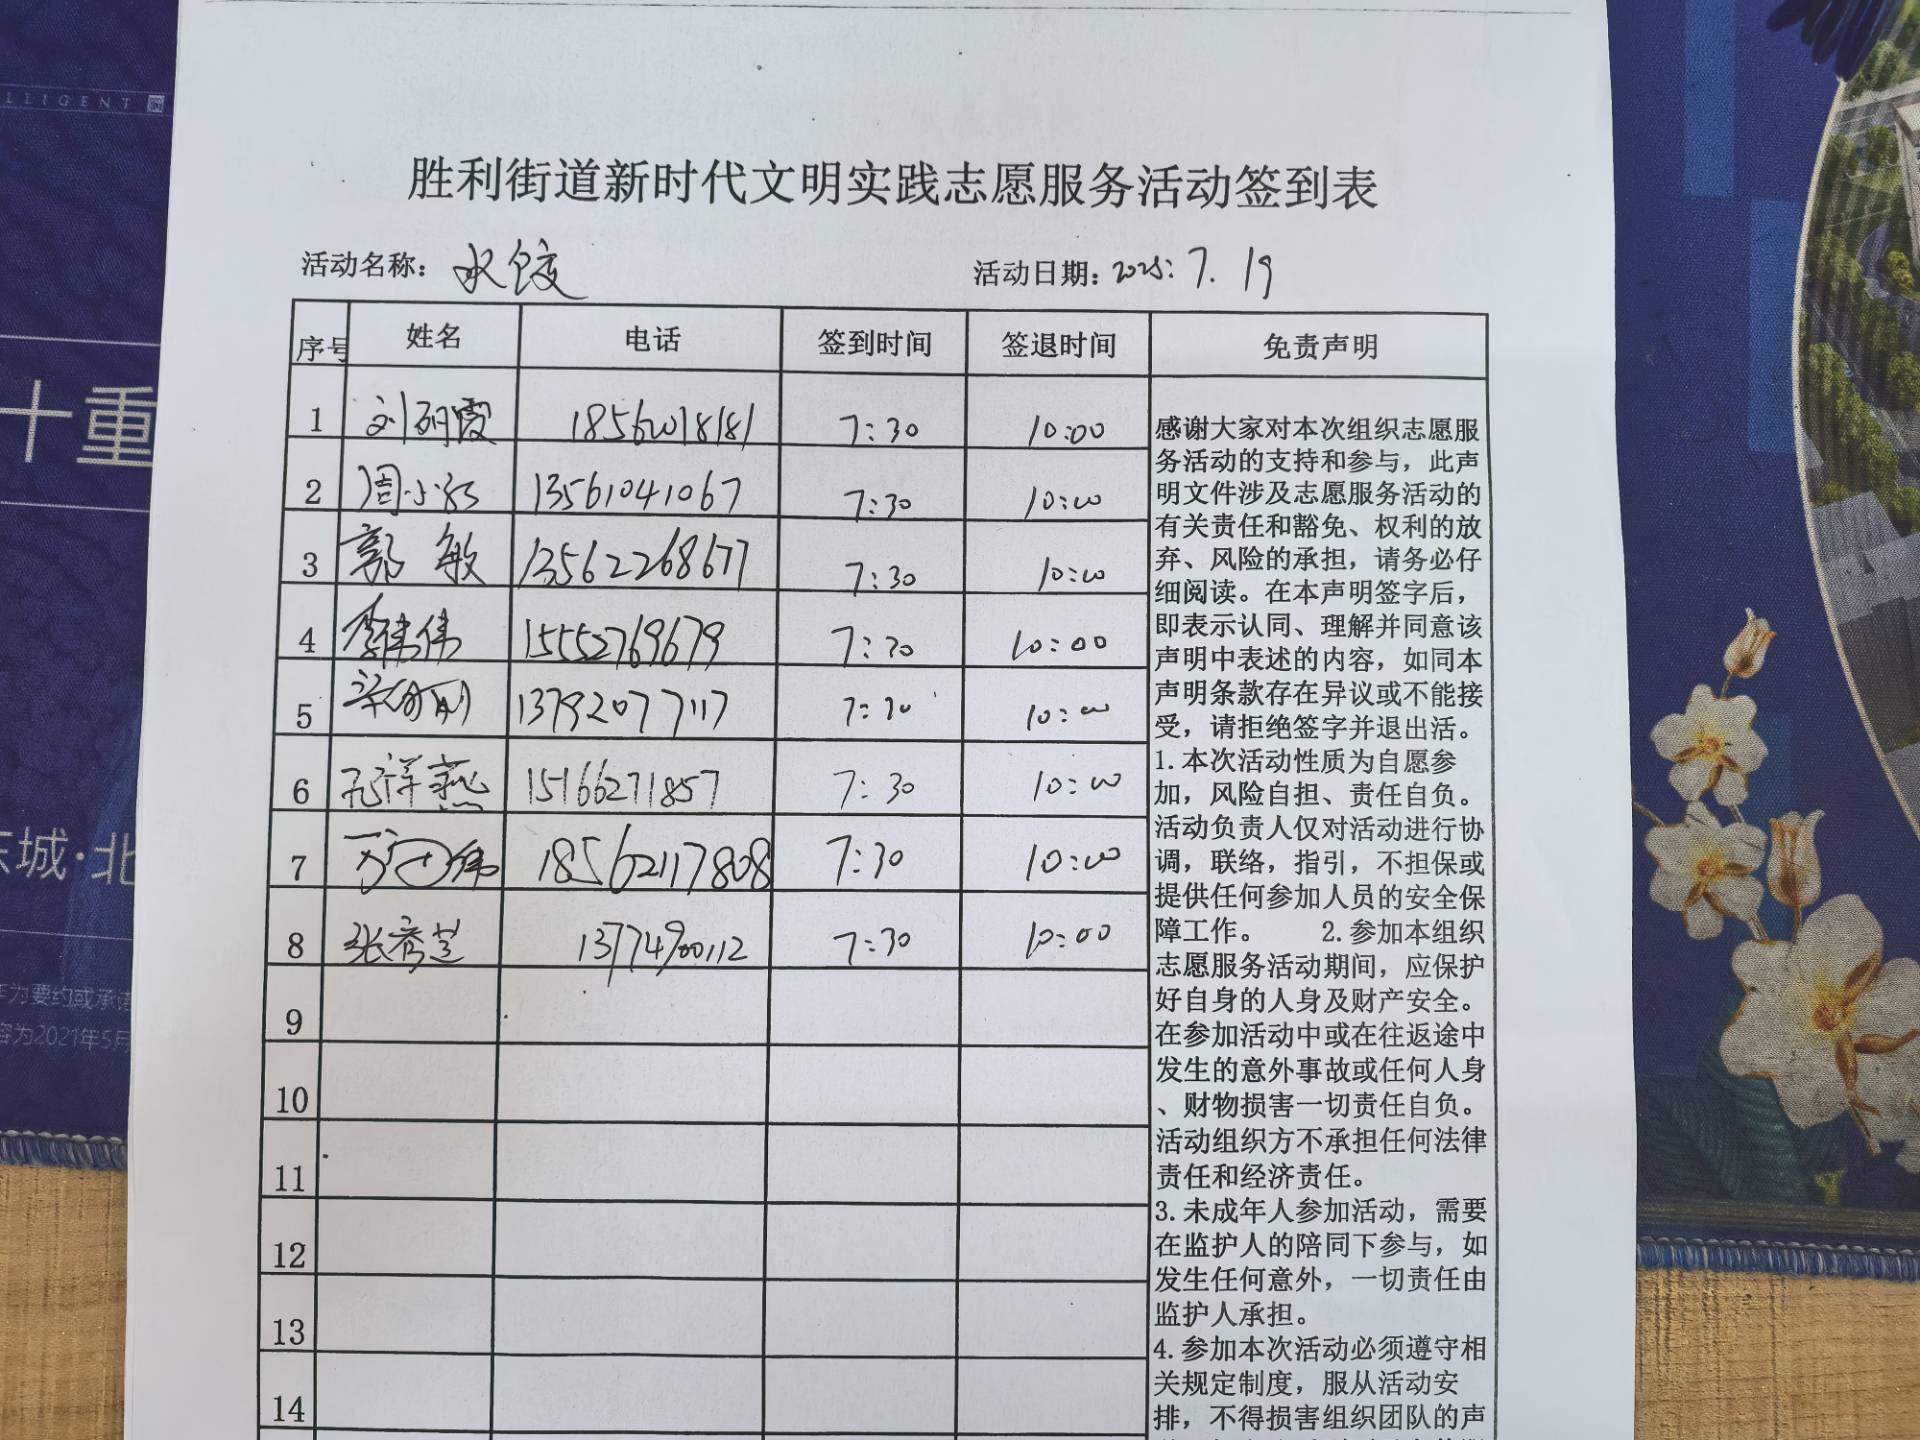 LLIGENT
十重
东城·北
容为2021年5月
胜利街道新时代文明实践志愿服务活动签到表
活动名称：水饺
活动日期：2025.7.19
序号 姓名 电话 签到时间 签退时间 免责声明
1 刘丽霞 18562018181 7:30 10:00
2 周小红 13561041067 7:30 10:00
3 郭敏 13562268677 7:30 10:00
4 李伟伟 15552769679 7:30 10:00
5 13792077117 7:30 10:00
6 孔祥燕 15166271857 7:30 10:00
7 18562117808 7:30 10:00
8 张秀芝 13774900112 7:30 10:00
9
10
11
12
13
14
感谢大家对本次组织志愿服
务活动的支持和参与，此声
明文件涉及志愿服务活动的
有关责任和豁免、权利的放
弃、风险的承担，请务必仔
细阅读。在本声明签字后，
即表示认同、理解并同意该
声明中表述的内容，如同本
声明条款存在异议或不能接
受，请拒绝签字并退出活。
1.本次活动性质为自愿参
加，风险自担、责任自负。
活动负责人仅对活动进行协
调，联络，指引，不担保或
提供任何参加人员的安全保
障工作。 2.参加本组织
志愿服务活动期间，应保护
好自身的人身及财产安全。
在参加活动中或在往返途中
发生的意外事故或任何人身
、财物损害一切责任自负。
活动组织方不承担任何法律
责任和经济责任。
3.未成年人参加活动，需要
在监护人的陪同下参与，如
发生任何意外，一切责任由
监护人承担。
4.参加本次活动必须遵守相
关规定制度，服从活动安
排，不得损害组织团队的声